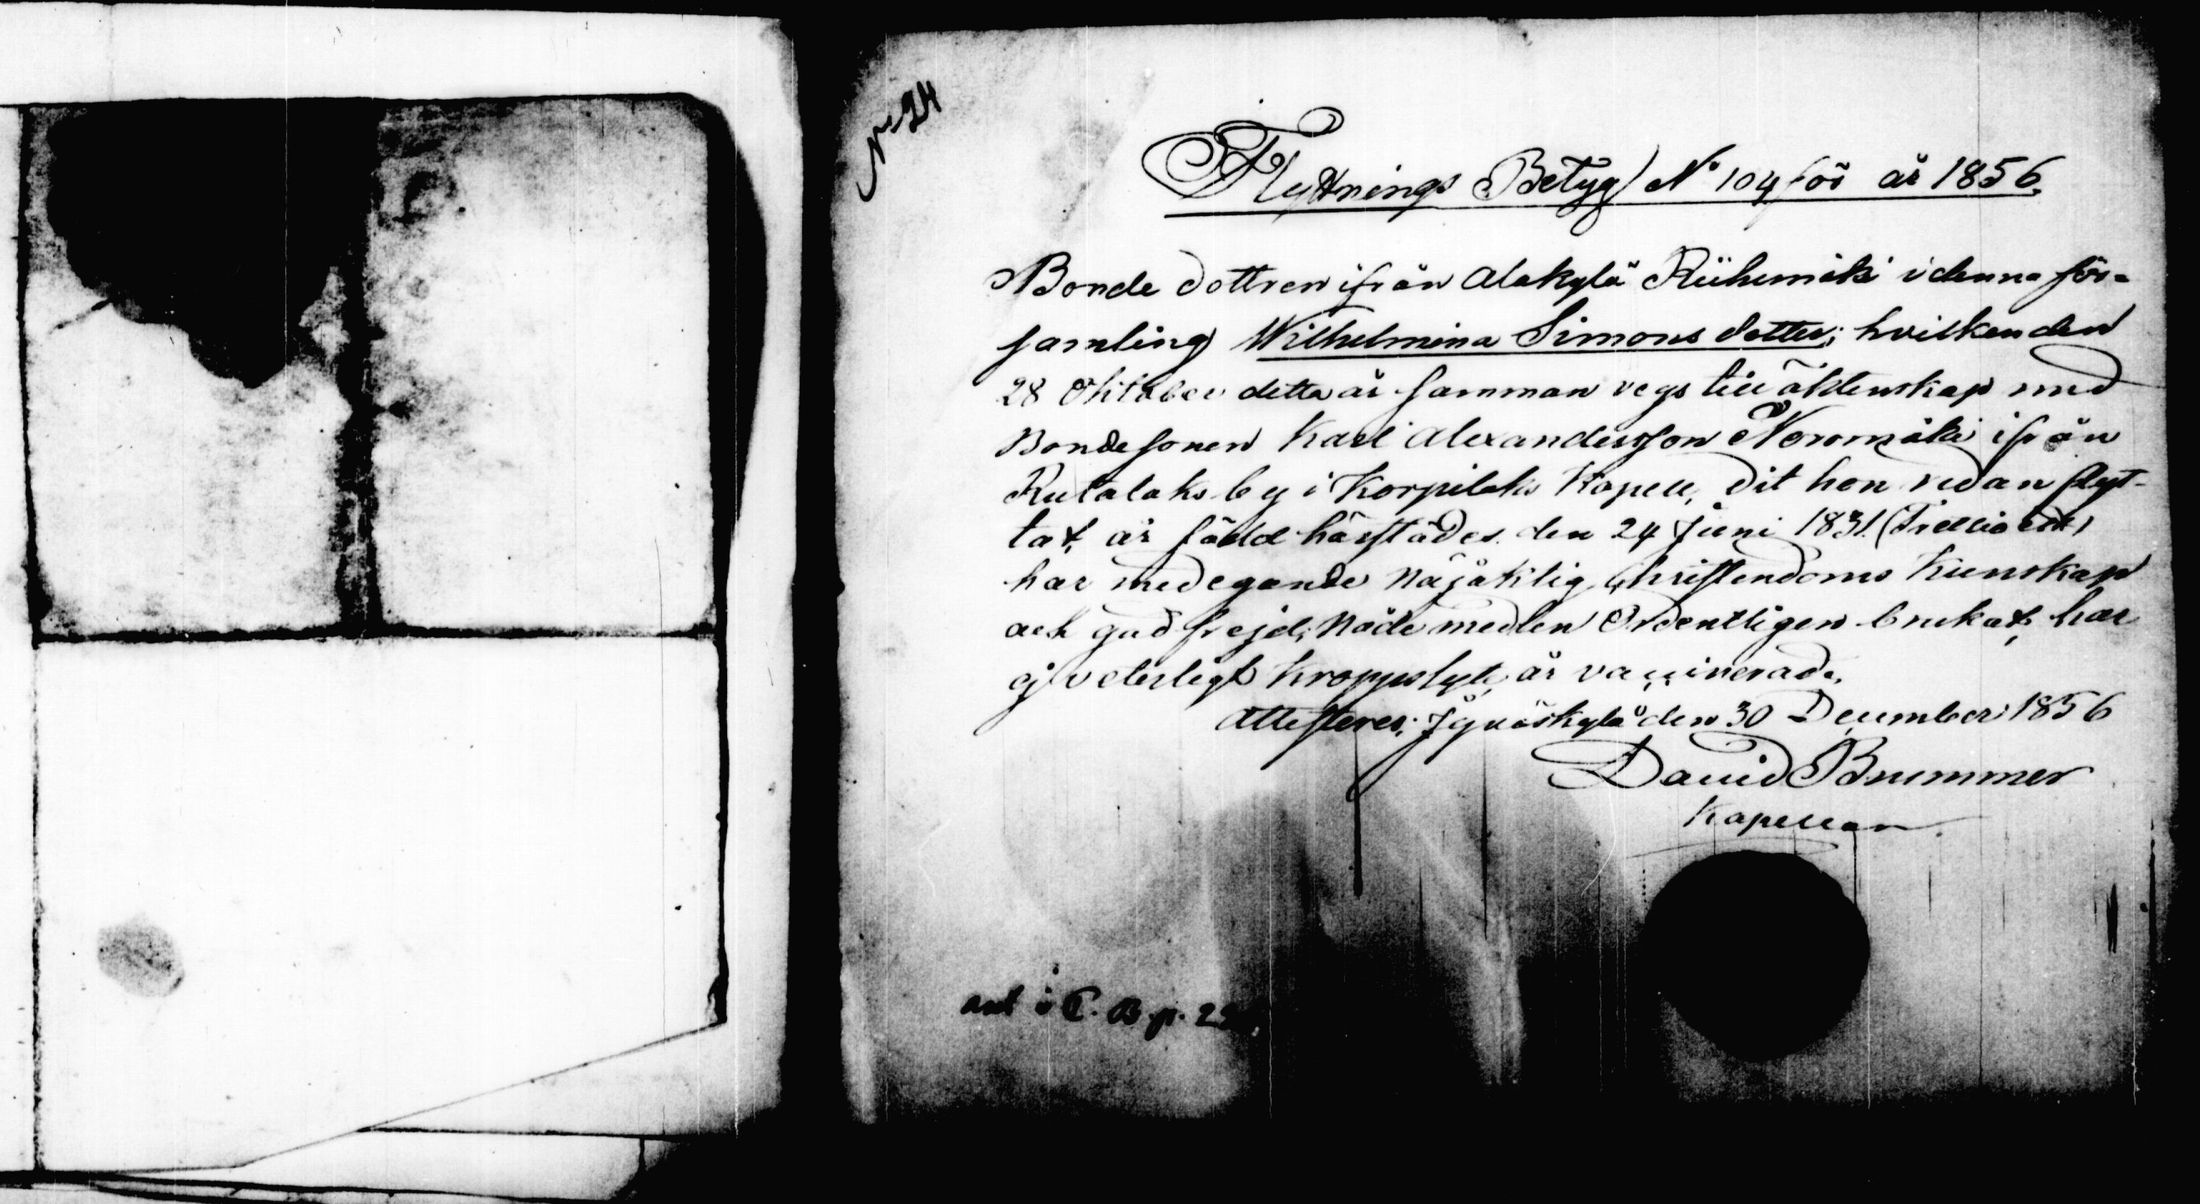 N:o 24
Flyttnings Betyg N:o 104 för år 1856.
Bonde dottren ifrån Alakylä Riihimäki i denna för-
samling Wilhelmina Simons dotter; hvilken den
28 Oktober detta år samman vegs till äktenskap med
Bondesonen Karl Alexandersson Noromäki ifrån
Rutalaks by i Korpilaks Kapell, dit hon redan flyt-
tat, är född härstädes den 24 Juni 1831 (Trettio ett)
har medegande nöjaktig Christendoms Kunskap
och god frejd; Nåde medlen Ordentligen brukat, har
ej veterligt Kroppslyte, är vaccinerad.
Attesteres; Jyväskylä den 30 December 1856
David Brummer
Kapellan
ant i C. B. p.